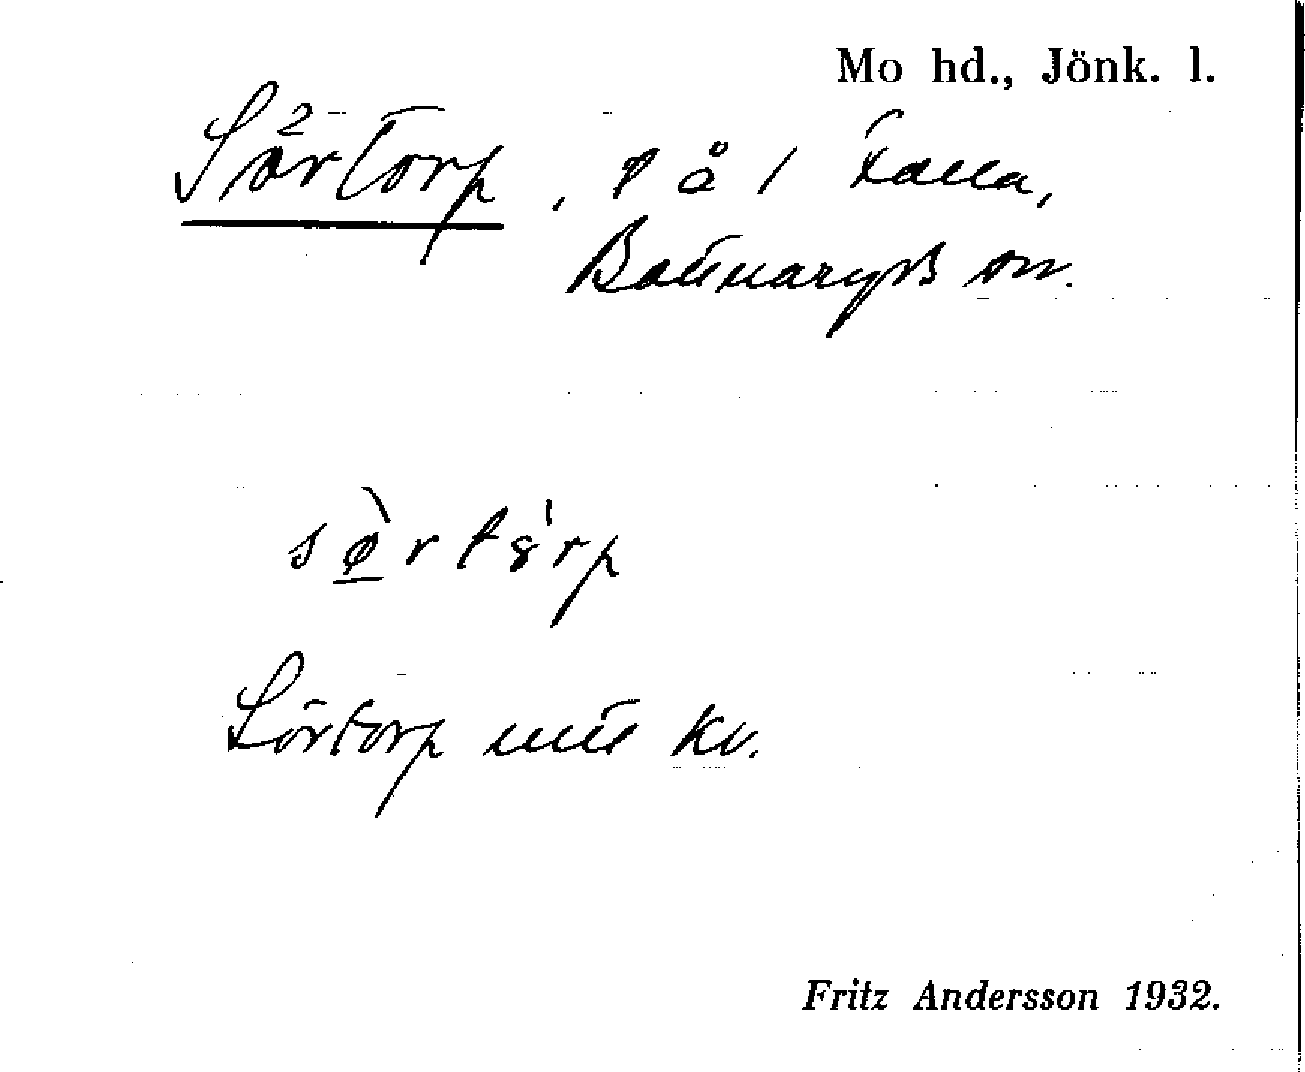 Mo hd., Jönk. l.
Sörtorp, på 1 Falla,
Bottnaryds sn.
sø̀rtȣ̍rp
Sörtorp mtl Kv.
Fritz Andersson 1932.